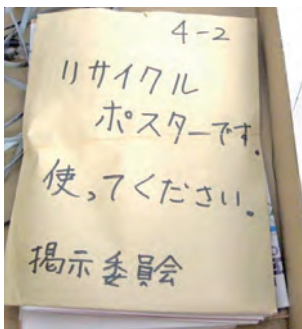 4-2
リサイクル
ポスターです.
使ってください。
掲示委員会